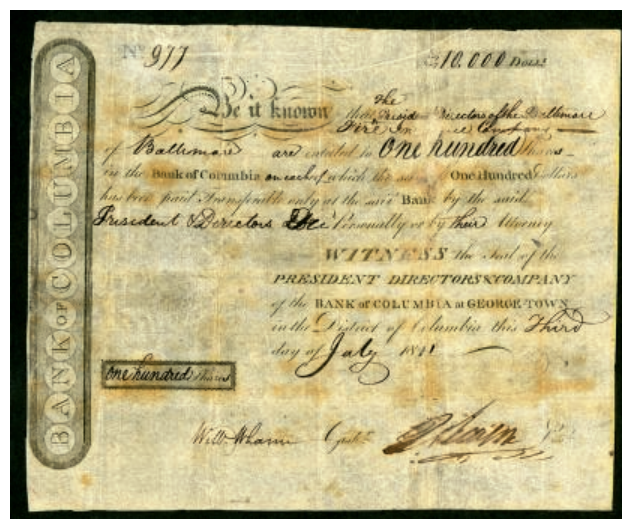 BANK OF COLUMBIA
No. 977
10.000 Dolls
Be it known that The President Directors of the Baltimore
Fire Company
of Baltimore are entitled to One hundred Shares
in the Bank of Columbia on each of which the sum One Hundred Dollars
has been paid transferable only at the said Bank by the said
President & Directors &c Personally or by their Attorney
WITNESS the Seal of the
PRESIDENT DIRECTORS & COMPANY
of the BANK of COLUMBIA at GEORGE-TOWN
in the District of Columbia this Third
day of July 1811
One hundred Shares
Will. Whann